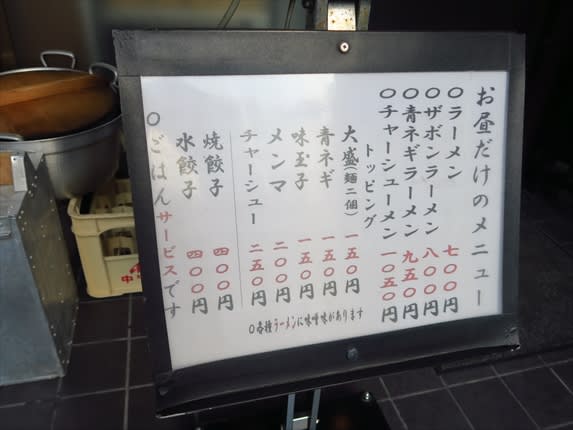 お昼だけのメニュー
〇ラーメン 七〇〇円
〇ザボンラーメン 八〇〇円
〇青ネギラーメン 九五〇円
〇チャーシューメン 一〇五〇円
トッピング
大盛(麺二個) 一五〇円
青ネギ 一五〇円
味玉子 一五〇円
メンマ 二〇〇円
チャーシュー 二五〇円
焼餃子 四〇〇円
水餃子 四〇〇円
〇ごはんサービスです
〇各種ラーメンに味噌味があります